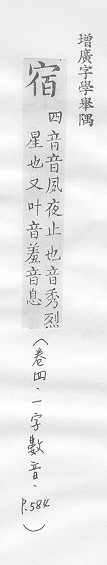 增廣字學舉隅
宿 四音音夙夜止也音秀烈
星也又叶音羞音息
(卷四、一字數音、P.584)